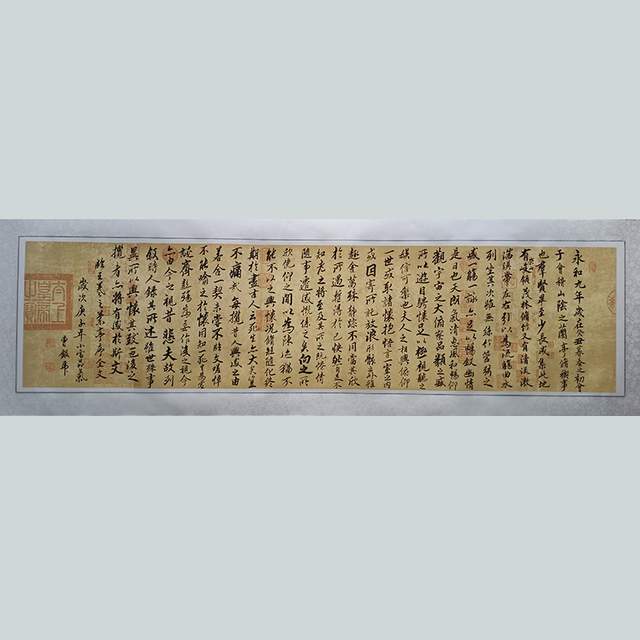 永和九年歲在癸丑暮春之初會
于會稽山陰之蘭亭脩禊事
也羣賢畢至少長咸集此地
有峻領茂林脩竹又有清流激
湍暎帶左右引以為流觴曲水
列坐其次雖無絲竹管弦之
盛一觴一詠亦足以暢敘幽情
是日也天朗氣清惠風和暢仰
觀宇宙之大俯察品類之盛
所以遊目騁懷足以極視聽之
娛信可樂也夫人之相與俯仰
一世或取諸懷抱悟言一室之內
或因寄所託放浪形骸之外雖
趣舍萬殊靜躁不同當其欣
於所遇暫得於己快然自足不
知老之將至及其所之既倦情
隨事遷感慨係之矣向之所
欣俛仰之間以為陳迹猶不
能不以之興懷況脩短隨化終
期於盡古人云死生亦大矣豈
不痛哉每攬昔人興感之由
若合一契未嘗不臨文嗟悼
不能喻之於懷固知一死生為虛
誕齊彭殤為妄作後之視今
亦由今之視昔悲夫故列
敘時人錄其所述雖世殊事
異所以興懷其致一也後之
攬者亦將有感於斯文
臨王羲之蘭亭序全文
歲次庚子年小雪節氣